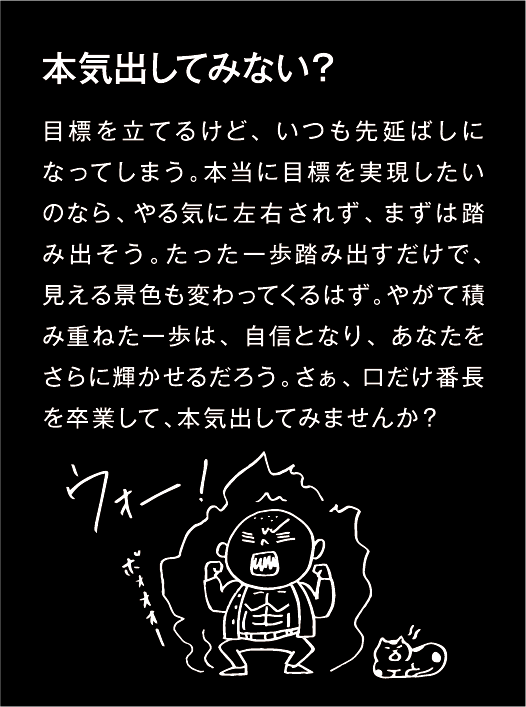 本気出してみない？
目標を立てるけど、いつも先延ばしに
なってしまう。本当に目標を実現したい
のなら、やる気に左右されず、まずは踏
み出そう。たった一歩踏み出すだけで、
見える景色も変わってくるはず。やがて積
み重ねた一歩は、自信となり、あなたを
さらに輝かせるだろう。さぁ、口だけ番長
を卒業して、本気出してみませんか？
ウォー！
ボォォォー